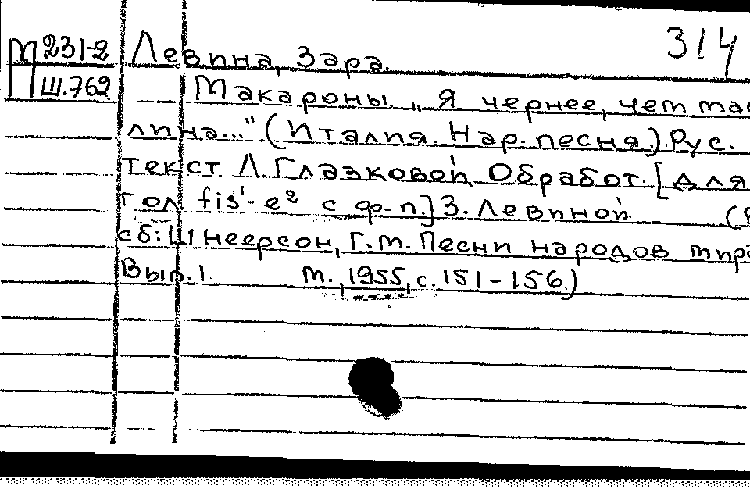 314
М 231-2 Левина, Зара.
Ш.762 Макароны „Я чернее, чем ма
лина..." (Италия. Нар. песня). Рус.
текст Л. Глазковой. Обработ. [для
гол fis¹-e² с ф-п.] З. Левиной (В
сб: Шнеерсон, Г.М. Песни народов мира
Вып. 1. М., 1955, с. 151-156)